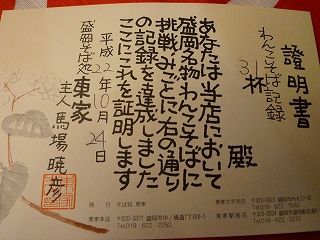 證明書
わんこそば記録
31杯
殿
あなたは当店において
盛岡名物わんこそばに
挑戦みごとに右の通り
の記録を達成しました
ここにこれを証明します
平成22年10月24日
盛岡そば処
東家
主人 馬場暁彦
発行 そば処 東家
東家本店 〒020-0871 盛岡市中ノ橋通1丁目8-3
TEL 019-622-2252
東家大手先店
東家駅前店